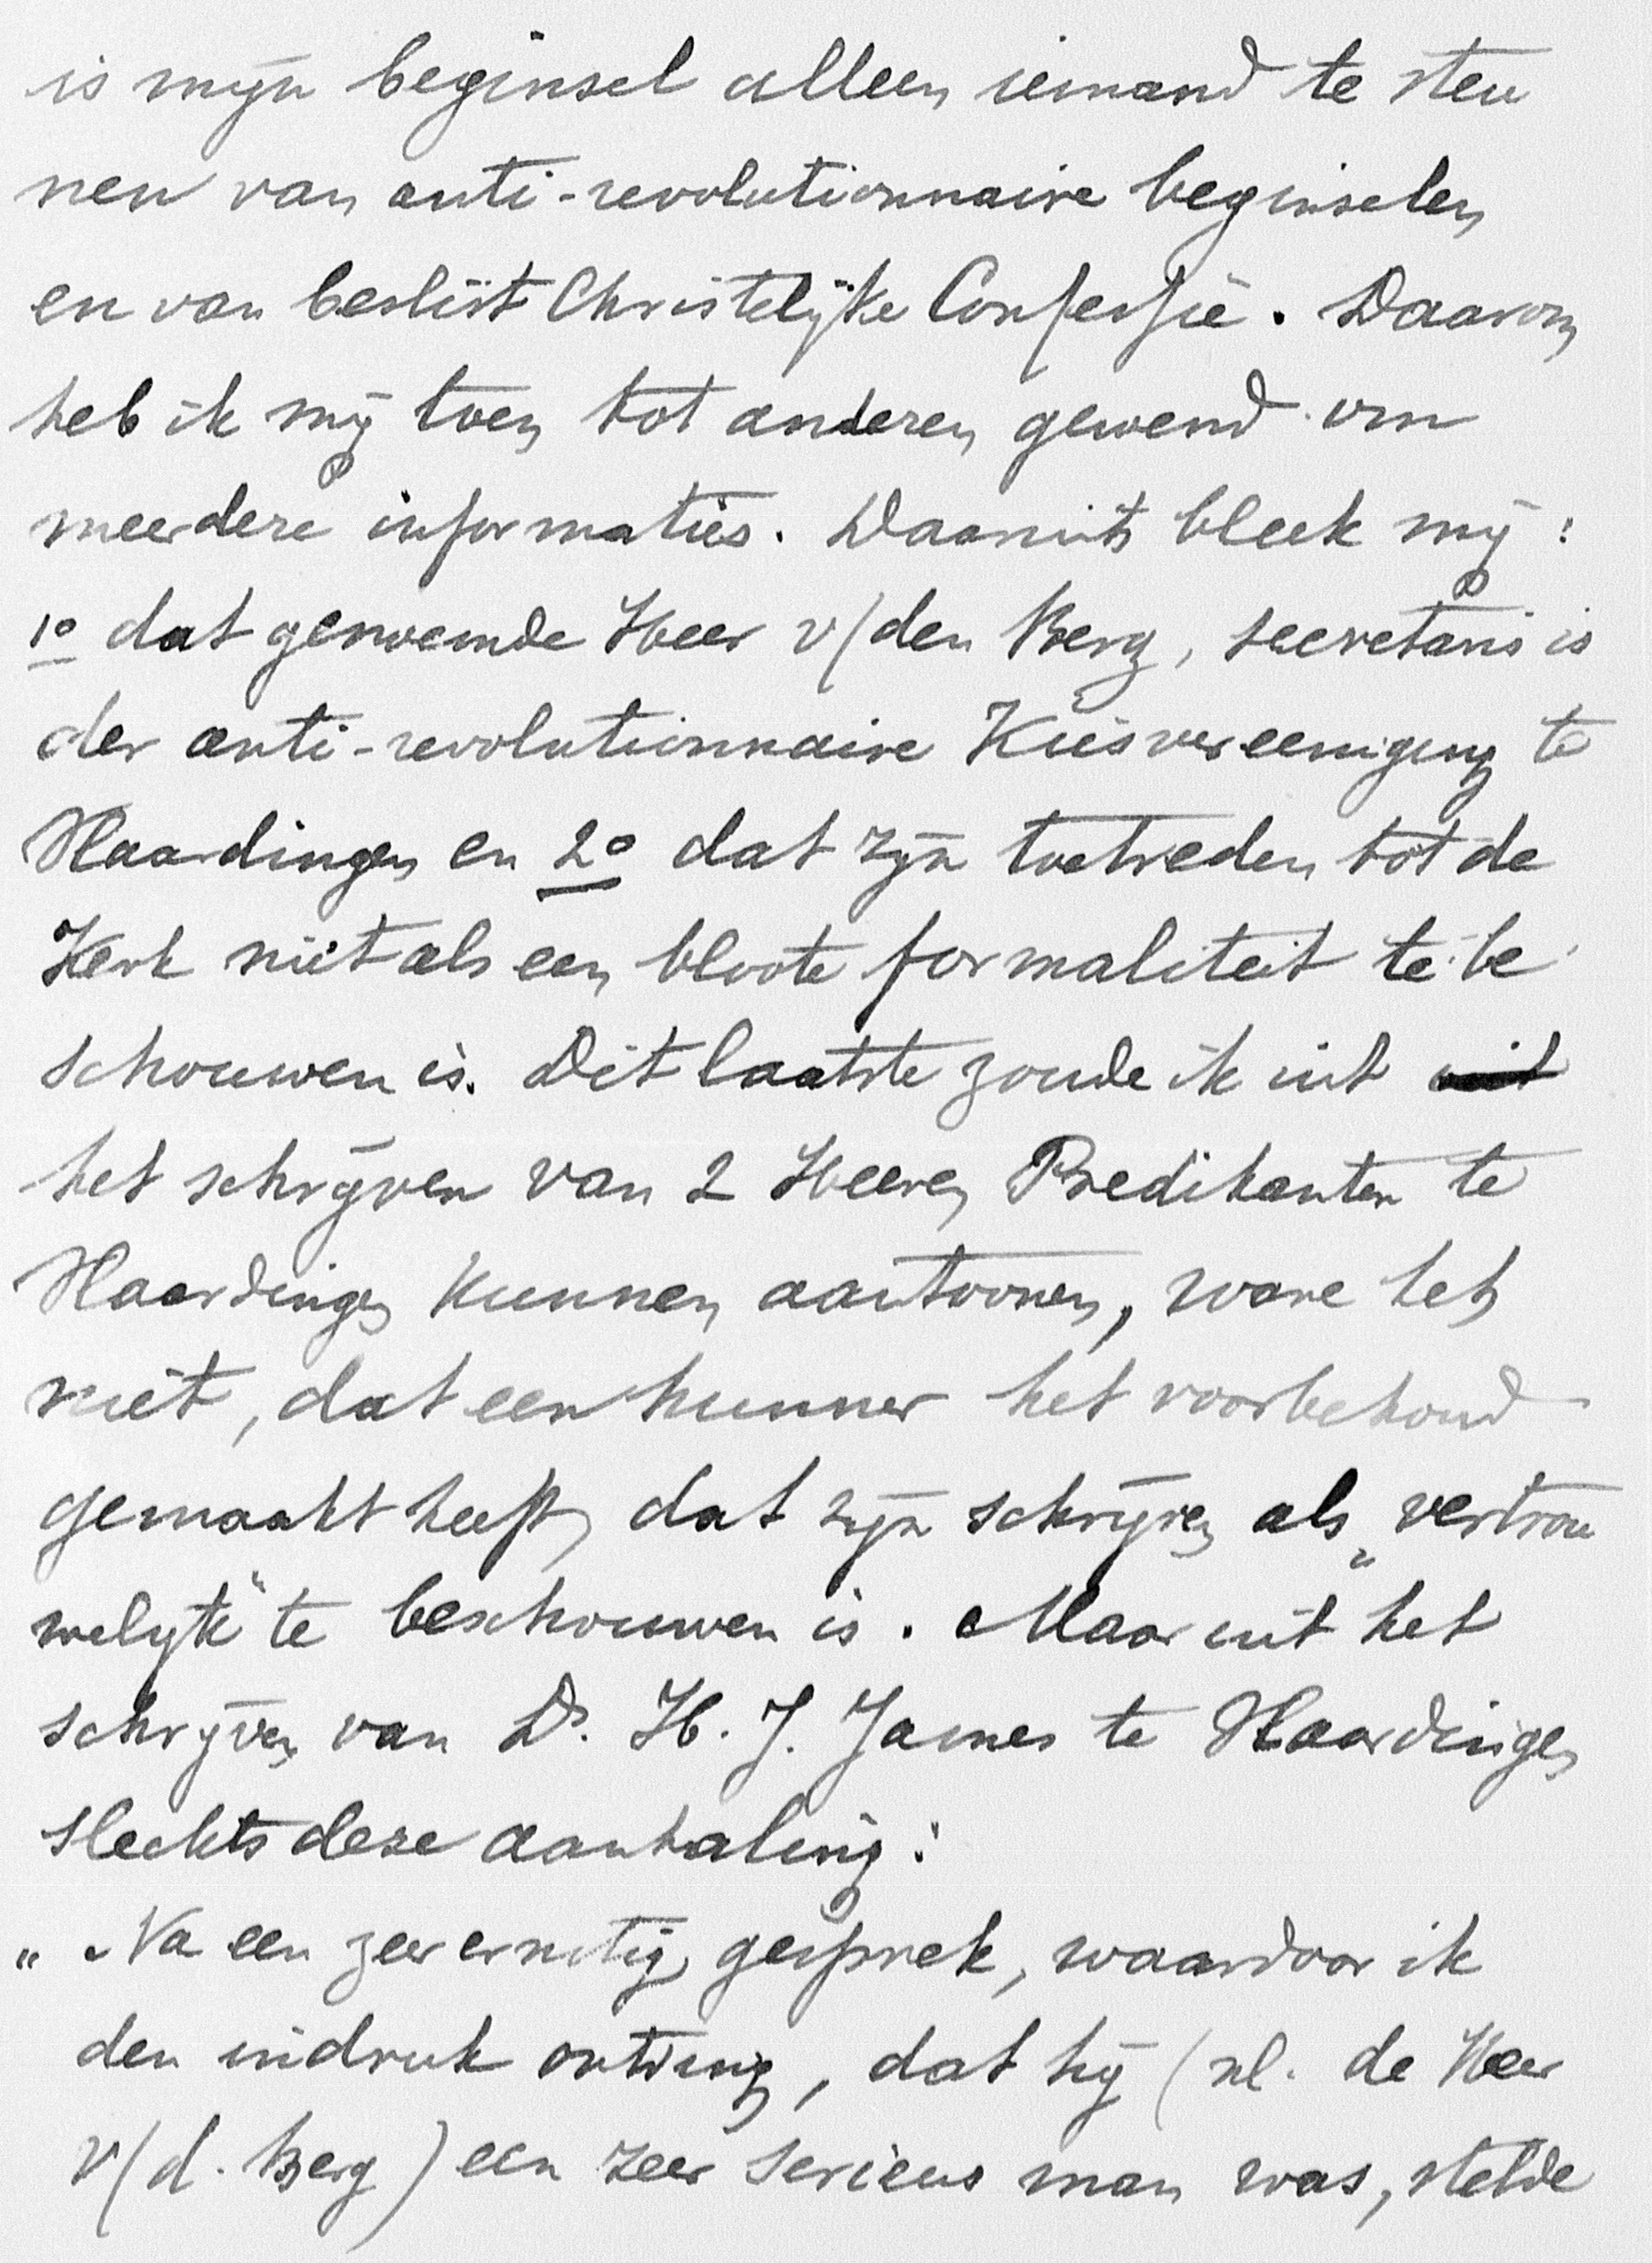 is mijn beginsel alleen iemand te steu
nen van anti-revolutionnaire beginselen
en van beslist Christelijke Confessie. Daarom
heb ik mij toen tot anderen gewend om
meerdere informaties. Daaruit bleek mij:
1o dat genoemde Heer v/den Berg, secretaris is
der anti-revolutionnaire Kiesvereeniging te
Vlaardingen en 2o dat zijn toetreden tot de
Kerk niet als een bloote formaliteit te be
schouwen is. Dit laatste zoude ik uit uit
het schrijven van 2 Heeren Predikanten te
Vlaardingen kunnen aantoonen, ware het
niet, dat een hunner het voorbehoud
gemaakt heeft, dat zijn schrijven als „vertrou
welijk" te beschouwen is. Maar uit het
schrijven van Ds. H. J. James te Vlaardingen
slechts deze aanhaling:
„Na een zeer ernstig gesprek, waardoor ik
den indruk ontving, dat hij (nl. de Heer
v/d. Berg) een zeer serieus man was, stelde